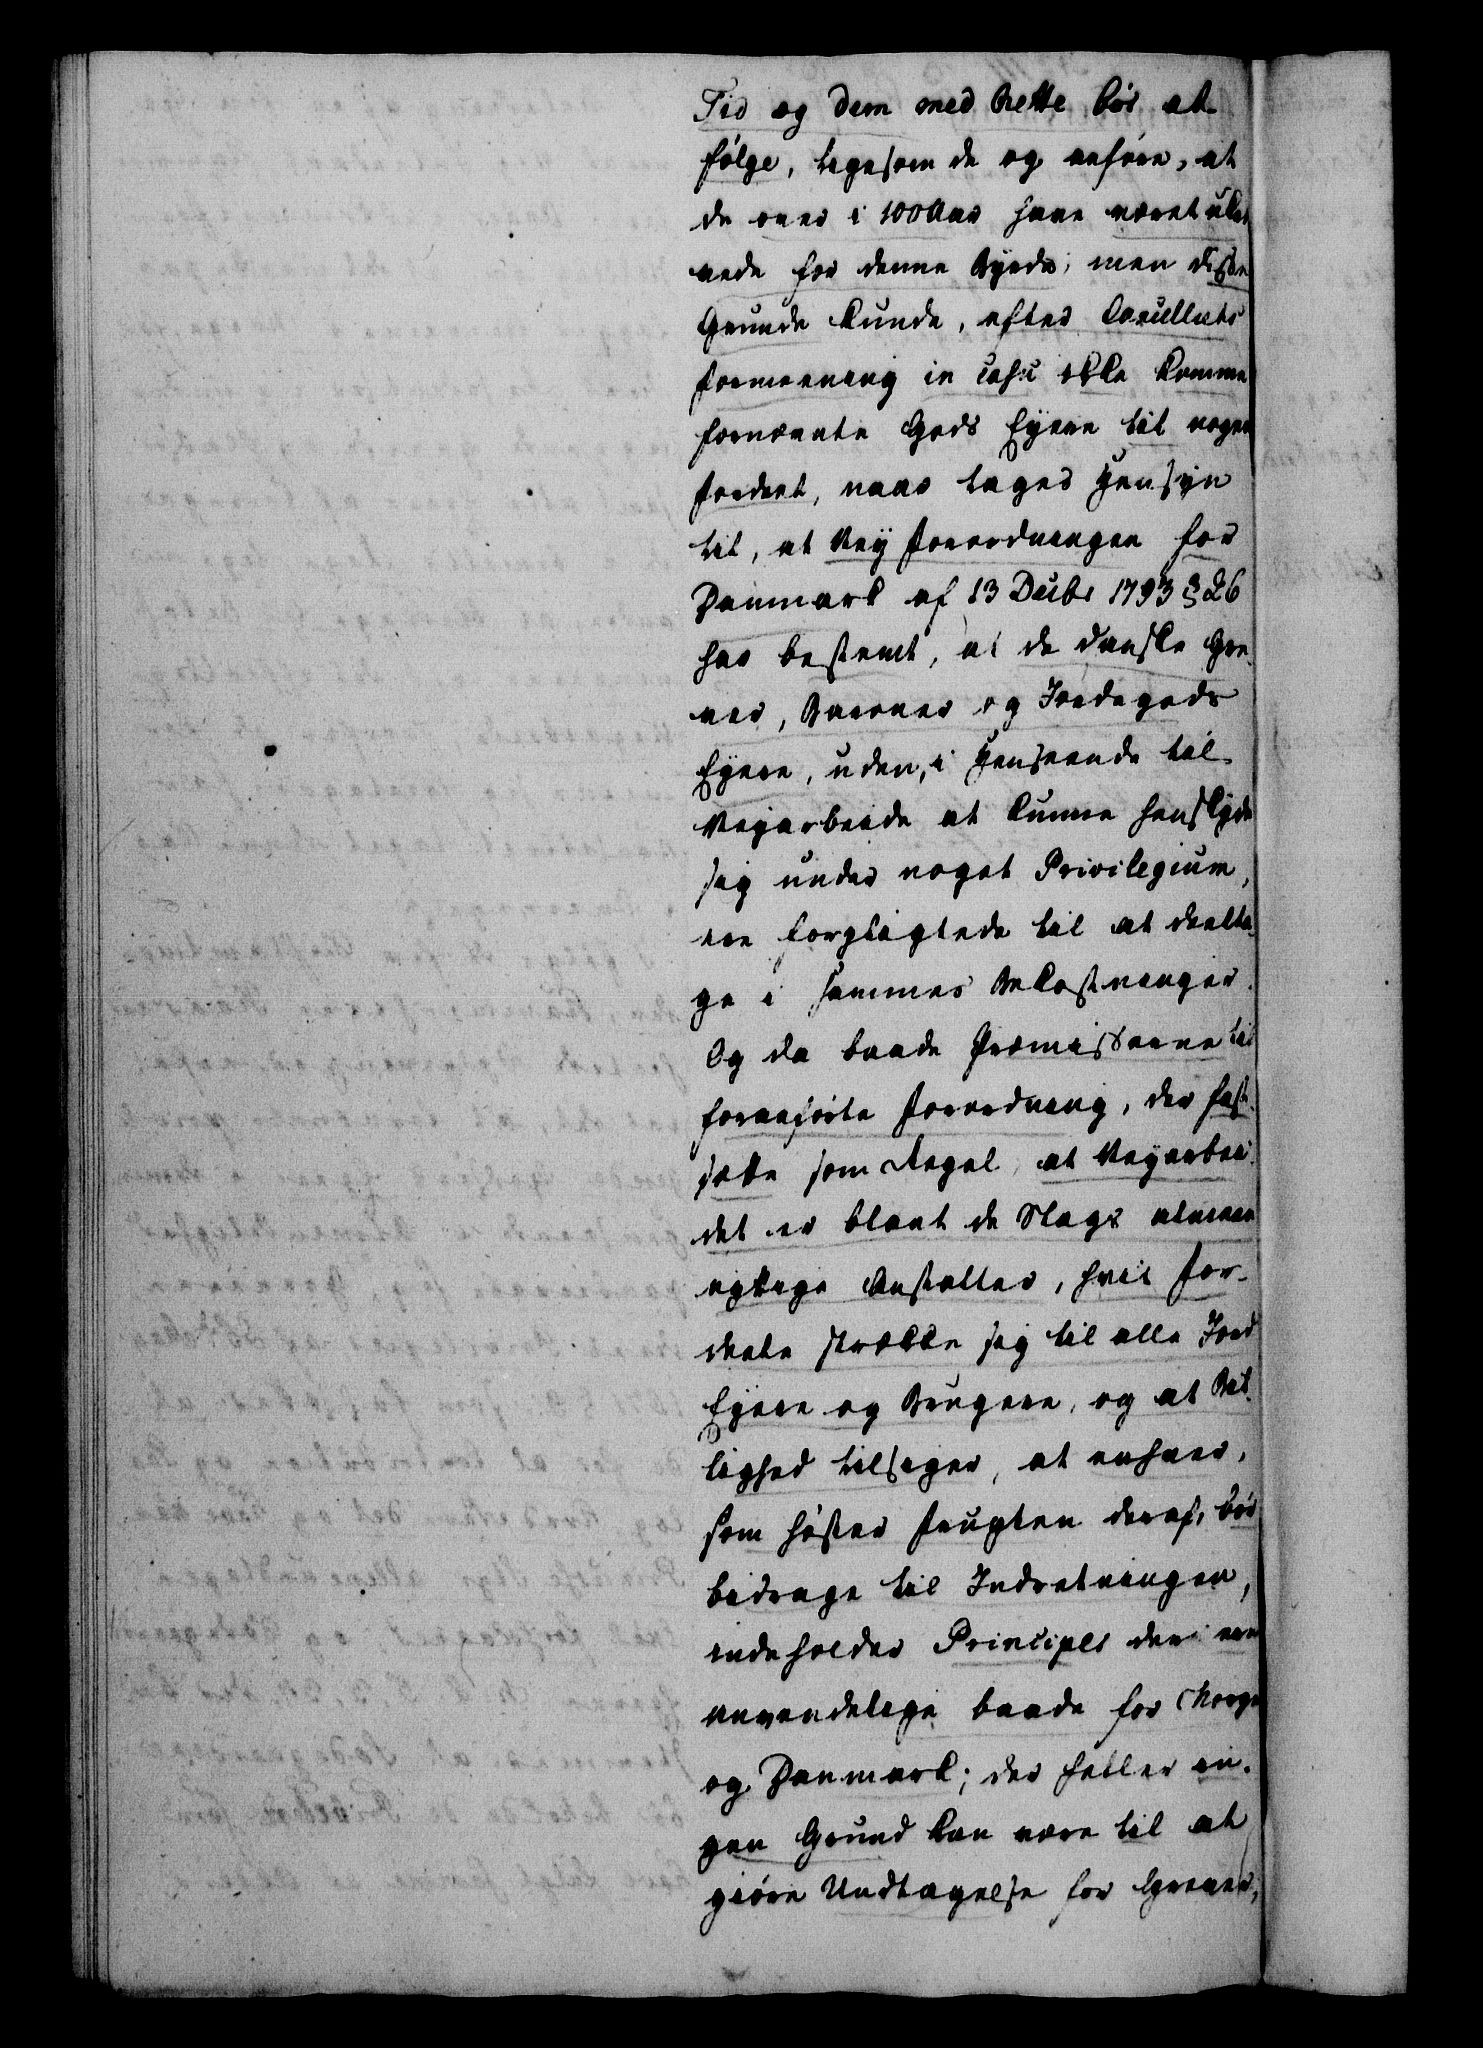 Tid og dem med Rette bör at
fölge, ligesom de og anföre, at
de over i 100 Aar have været
vede for denne Byrde; men disse
Grunde kunde, efter Cancelliets
formeening in casu ikke komme
fornævnte Gods Eyere til nogen
fordeel, naar tages Hensyn
til, at Vey forordningen for
Danmark af 13 Decbr 1793 § 26
har bestemt, at de danske Gre-
ver, Baroner og Jordegods
Eyere, uden, i Henseende til
Veyarbeide at kunne henskyde
sig under noget Privilegium,
ere forpligtede til at deelta-
ge i sammes Bekostninger.
Og da baade Præmisserne til
foranförte forordning, der fast-
sætte som Regel, at Veyarbei-
det er blant de Slags almeen
nyttige Anstalter, hvis for-
deele strække sig til alle Jord
Eyere og Brugere, og at Bil-
lighed tilsiger, at enhver,
som höster frugten deraf, bör
bidrage til Indretningen,
indeholder Principes der ere
anvendelige baade for Norge
og Danmark; der heller in-
gen Grund kan være til at
giöre Undtagelse for Grever,